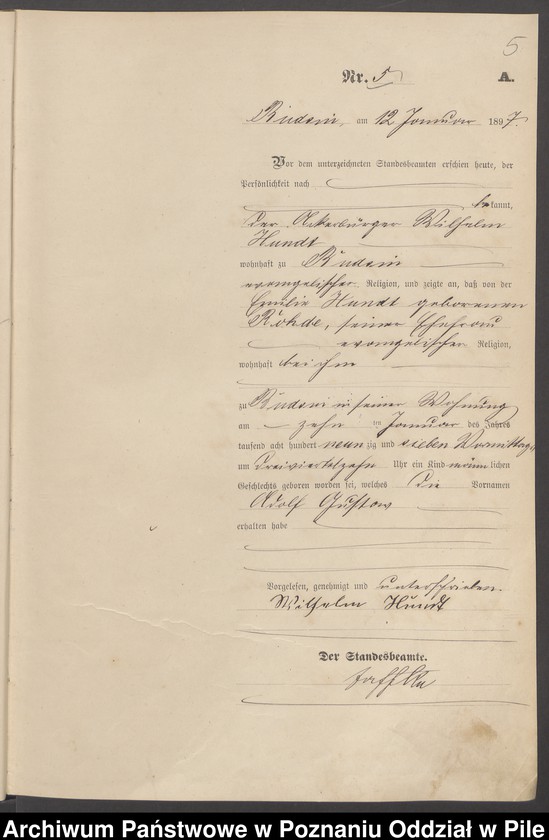 5
Nr. 5
A.
Budsin, am 12 Januar 1897.
Vor dem unterzeichneten Standesbeamten erschien heute, der
Persönlichkeit nach
bekannt,
der Ackerbürger Wilhelm
Hundt
wohnhaft zu Budsin
evangelischer Religion, und zeigte an, daß von der
Emilie Hundt geborenen
Rohde, seiner Ehefrau
evangelischer Religion,
wohnhaft bei ihm
zu Budsin in seiner Wohnung
am zehn ten Januar des Jahres
tausend acht hundert neun zig und sieben Vormittags
um dreiviertelzehn Uhr ein Kind männlichen
Geschlechts geboren worden sei, welches die Vornamen
Adolf Gustav
erhalten habe
Vorgelesen, genehmigt und unterschrieben.
Wilhelm Hundt
Der Standesbeamte.
Archiwum Państwowe w Poznaniu Oddział w Pile